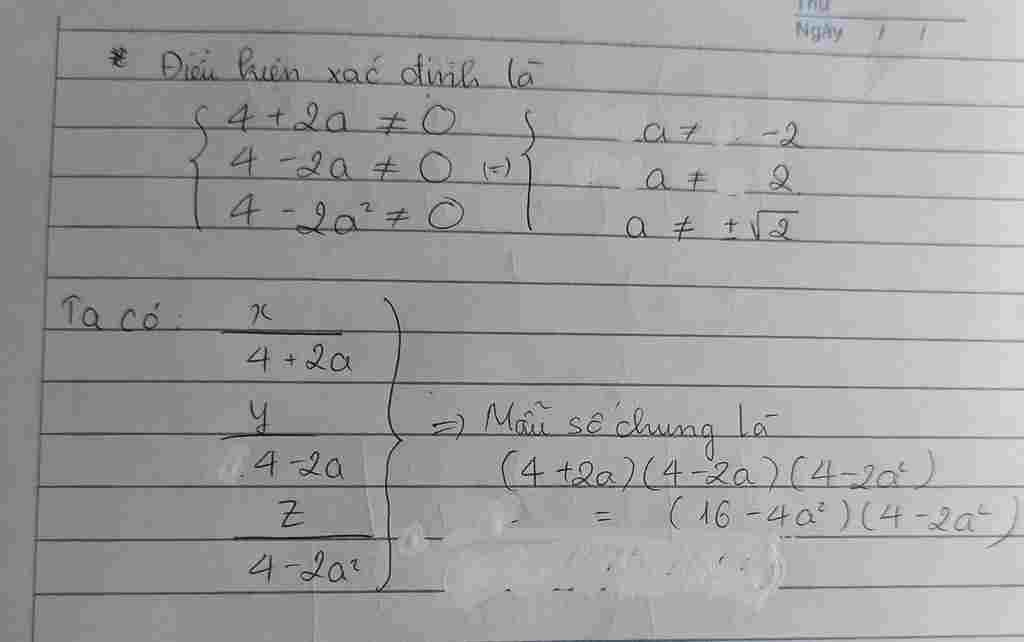 Thứ
Ngày / /
* Điều kiện xác định là
4 + 2a ≠ 0
4 - 2a ≠ 0 (=)
4 - 2a² ≠ 0
a ≠ -2
a ≠ 2
a ≠ ±√2
Ta có: x / 4 + 2a
y / 4 - 2a
z / 4 - 2a²
=> Mẫu số chung là
(4 + 2a)(4 - 2a)(4 - 2a²)
= (16 - 4a²)(4 - 2a²)